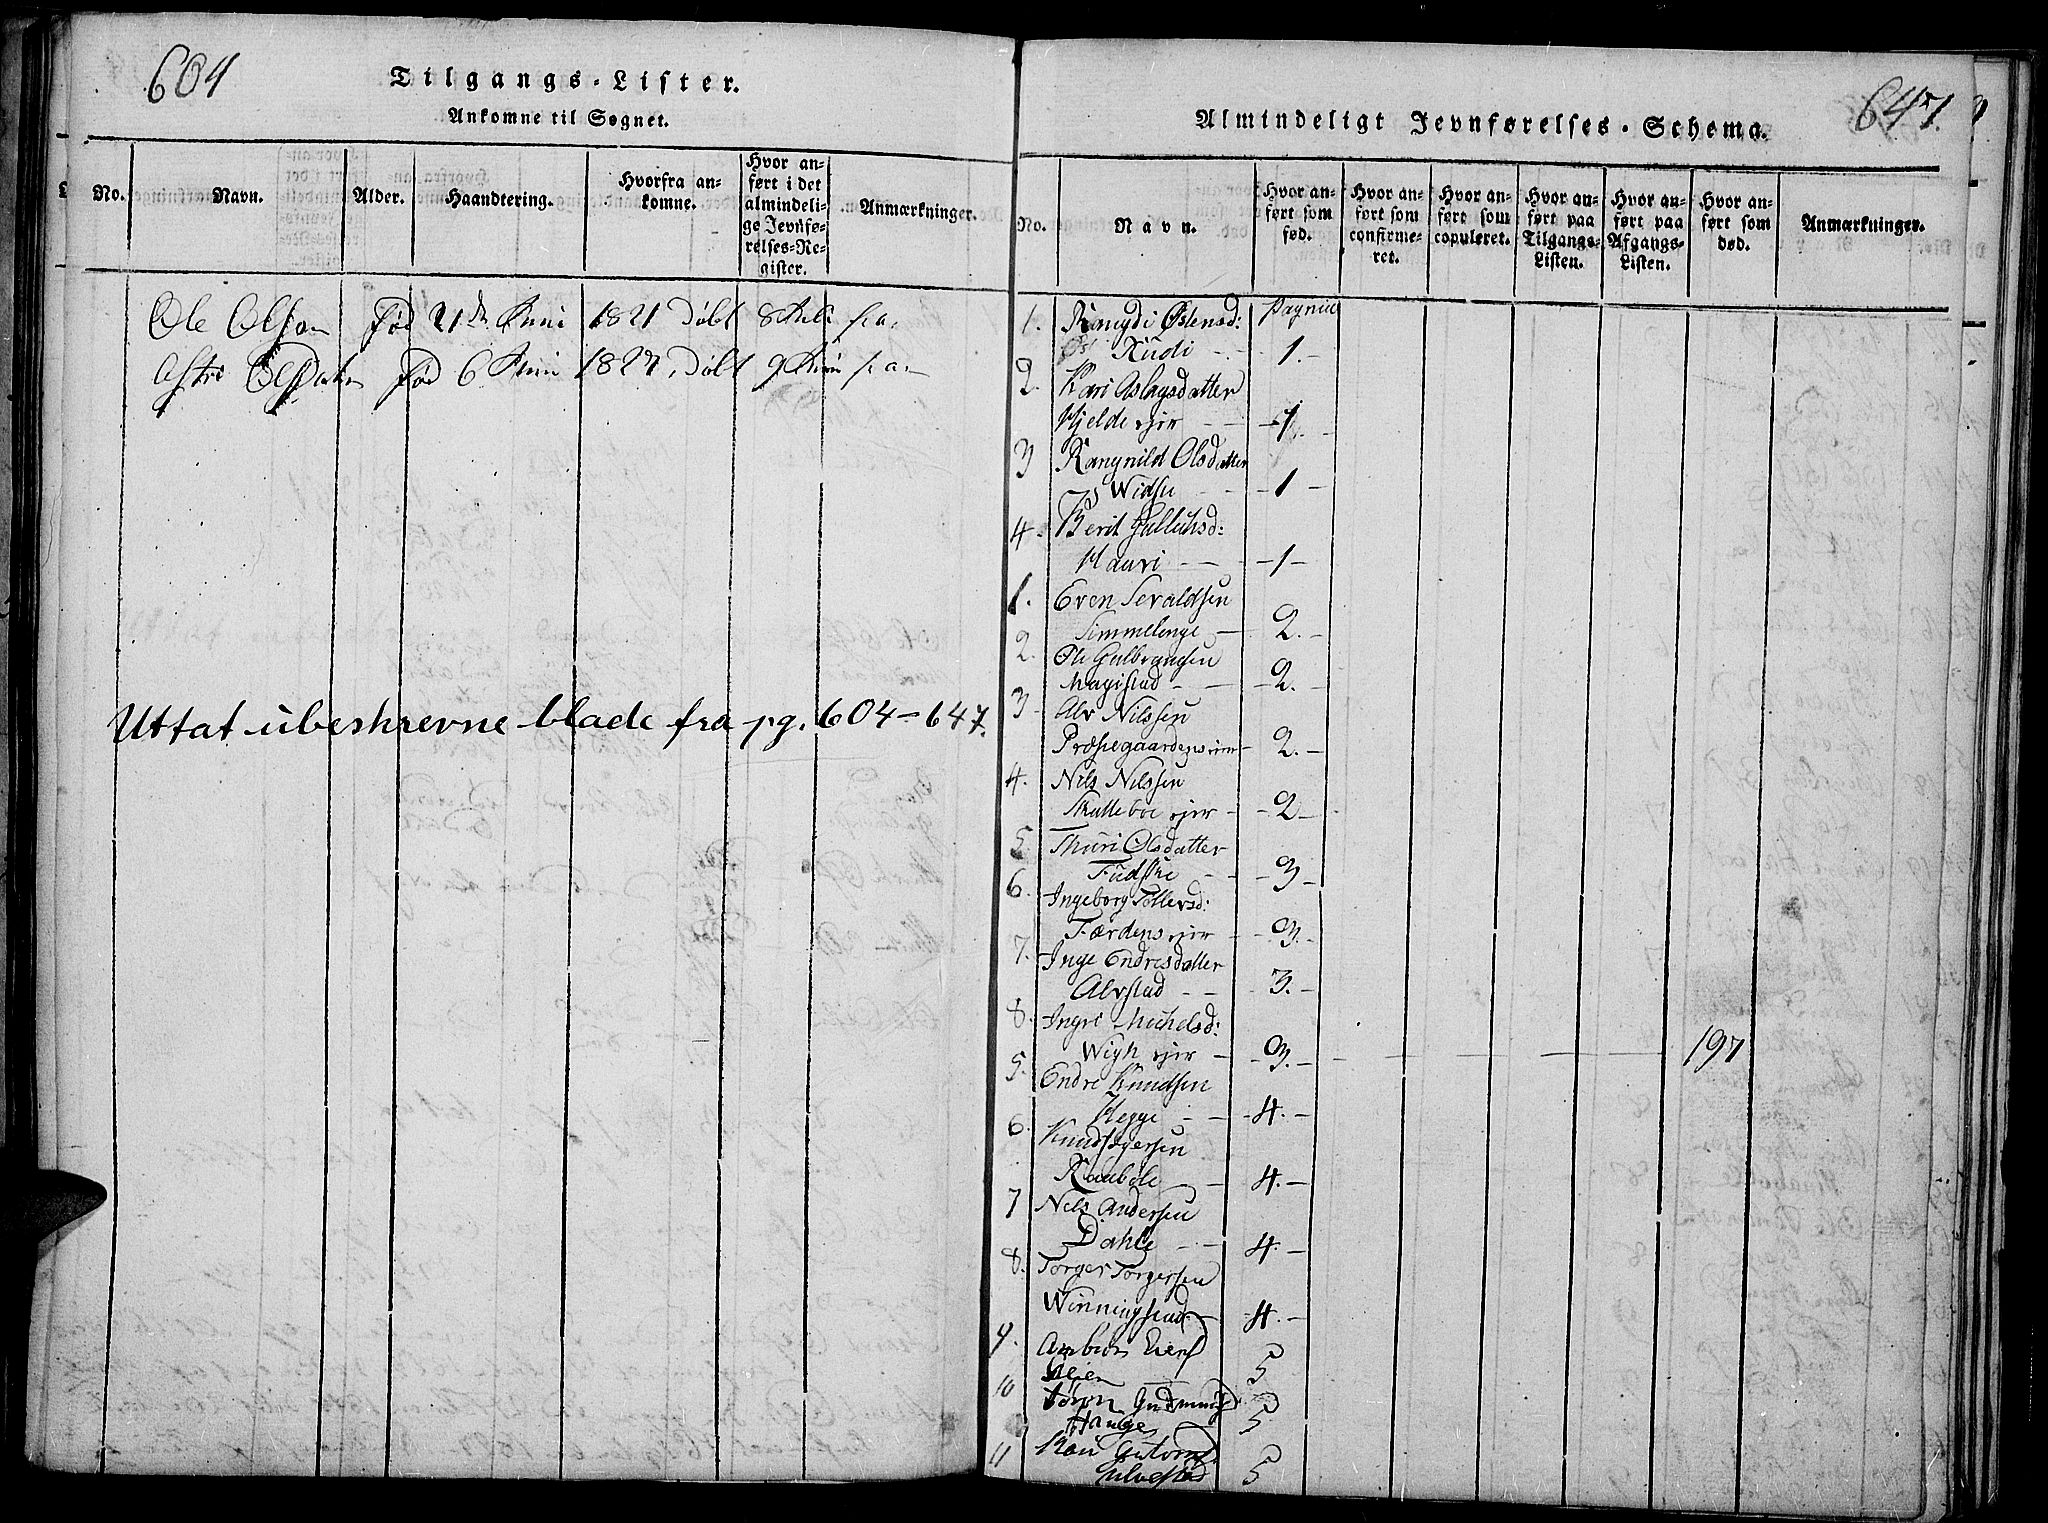 604
Tilgangs-Lister.
Ankomne til Sognet.
No.
Navn.
Alder.
Haandtering.
Hvorfra an-
komne.
Hvor an-
ført i det
almindeli-
ge Jevnfø-
relses-Re-
gister.
Anmærkninger.
Ole Olsen Fød 21de Juni 1821 Døbt 8 Juli
Astri Fød 6 Juni 1827, Døbt 9 Juni
Uttat ubeskrevne blade fra pg. 604-647.
647.
Almindeligt Jevnførelses-Schema.
No.
Navn.
Hvor an-
ført som
fød.
Hvor an-
ført som
confirme-
ret.
Hvor an-
ført som
copuleret.
Hvor an-
ført paa
Tilgangs-
Listen.
Hvor an-
ført paa
Afgangs-
Listen.
Hvor an-
ført som
død.
Anmærkninger.
1. Østensd: Pagina
Rudi - 1. -
2. Kari Aslagsdatter
Hjelde ejer - - 1 -
3 Rangnild Olsdatter
Widste - - 1 -
4. Berit Gullichsd:
Hauri - - 1 -
1. Even Sevaldsen
Simmelenge - 2. -
2. Ole Gulbrandsen
Magistad - - 2. -
3. Alv Nilssen
Præstegaardens ejer - 2. -
4. Nils Nilssen
Skatteboe ejer - 2 -
5 Thuri Olsdatter
Fudske - - 3 -
6. Ingeborg Tollevsd:
Færdens ejer - 3. -
7. Inge Endresdatter
Alvstad - - 3. -
8. Ingri Michelsd:
Wigh ejer - 3. - 197
5. Endre Knudsen
Hegge - - 4. -
6. Knud Iversen
Raubøle - 4. -
7 Nils Andersen
Dahle - - 4. -
8. Torger Torgersen
Winningstad - 4. -
9. 5
10 Hauge 5
11 Kari Guttormsd
Ulvestad 5